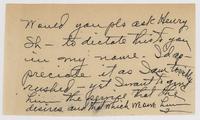 Would you pls ask Henry
Sh— to dictate this to you
in my name. I do ap-
preciate it as I am terribly
rushed — yet I want to give
him the service that he
desires and that which Mason